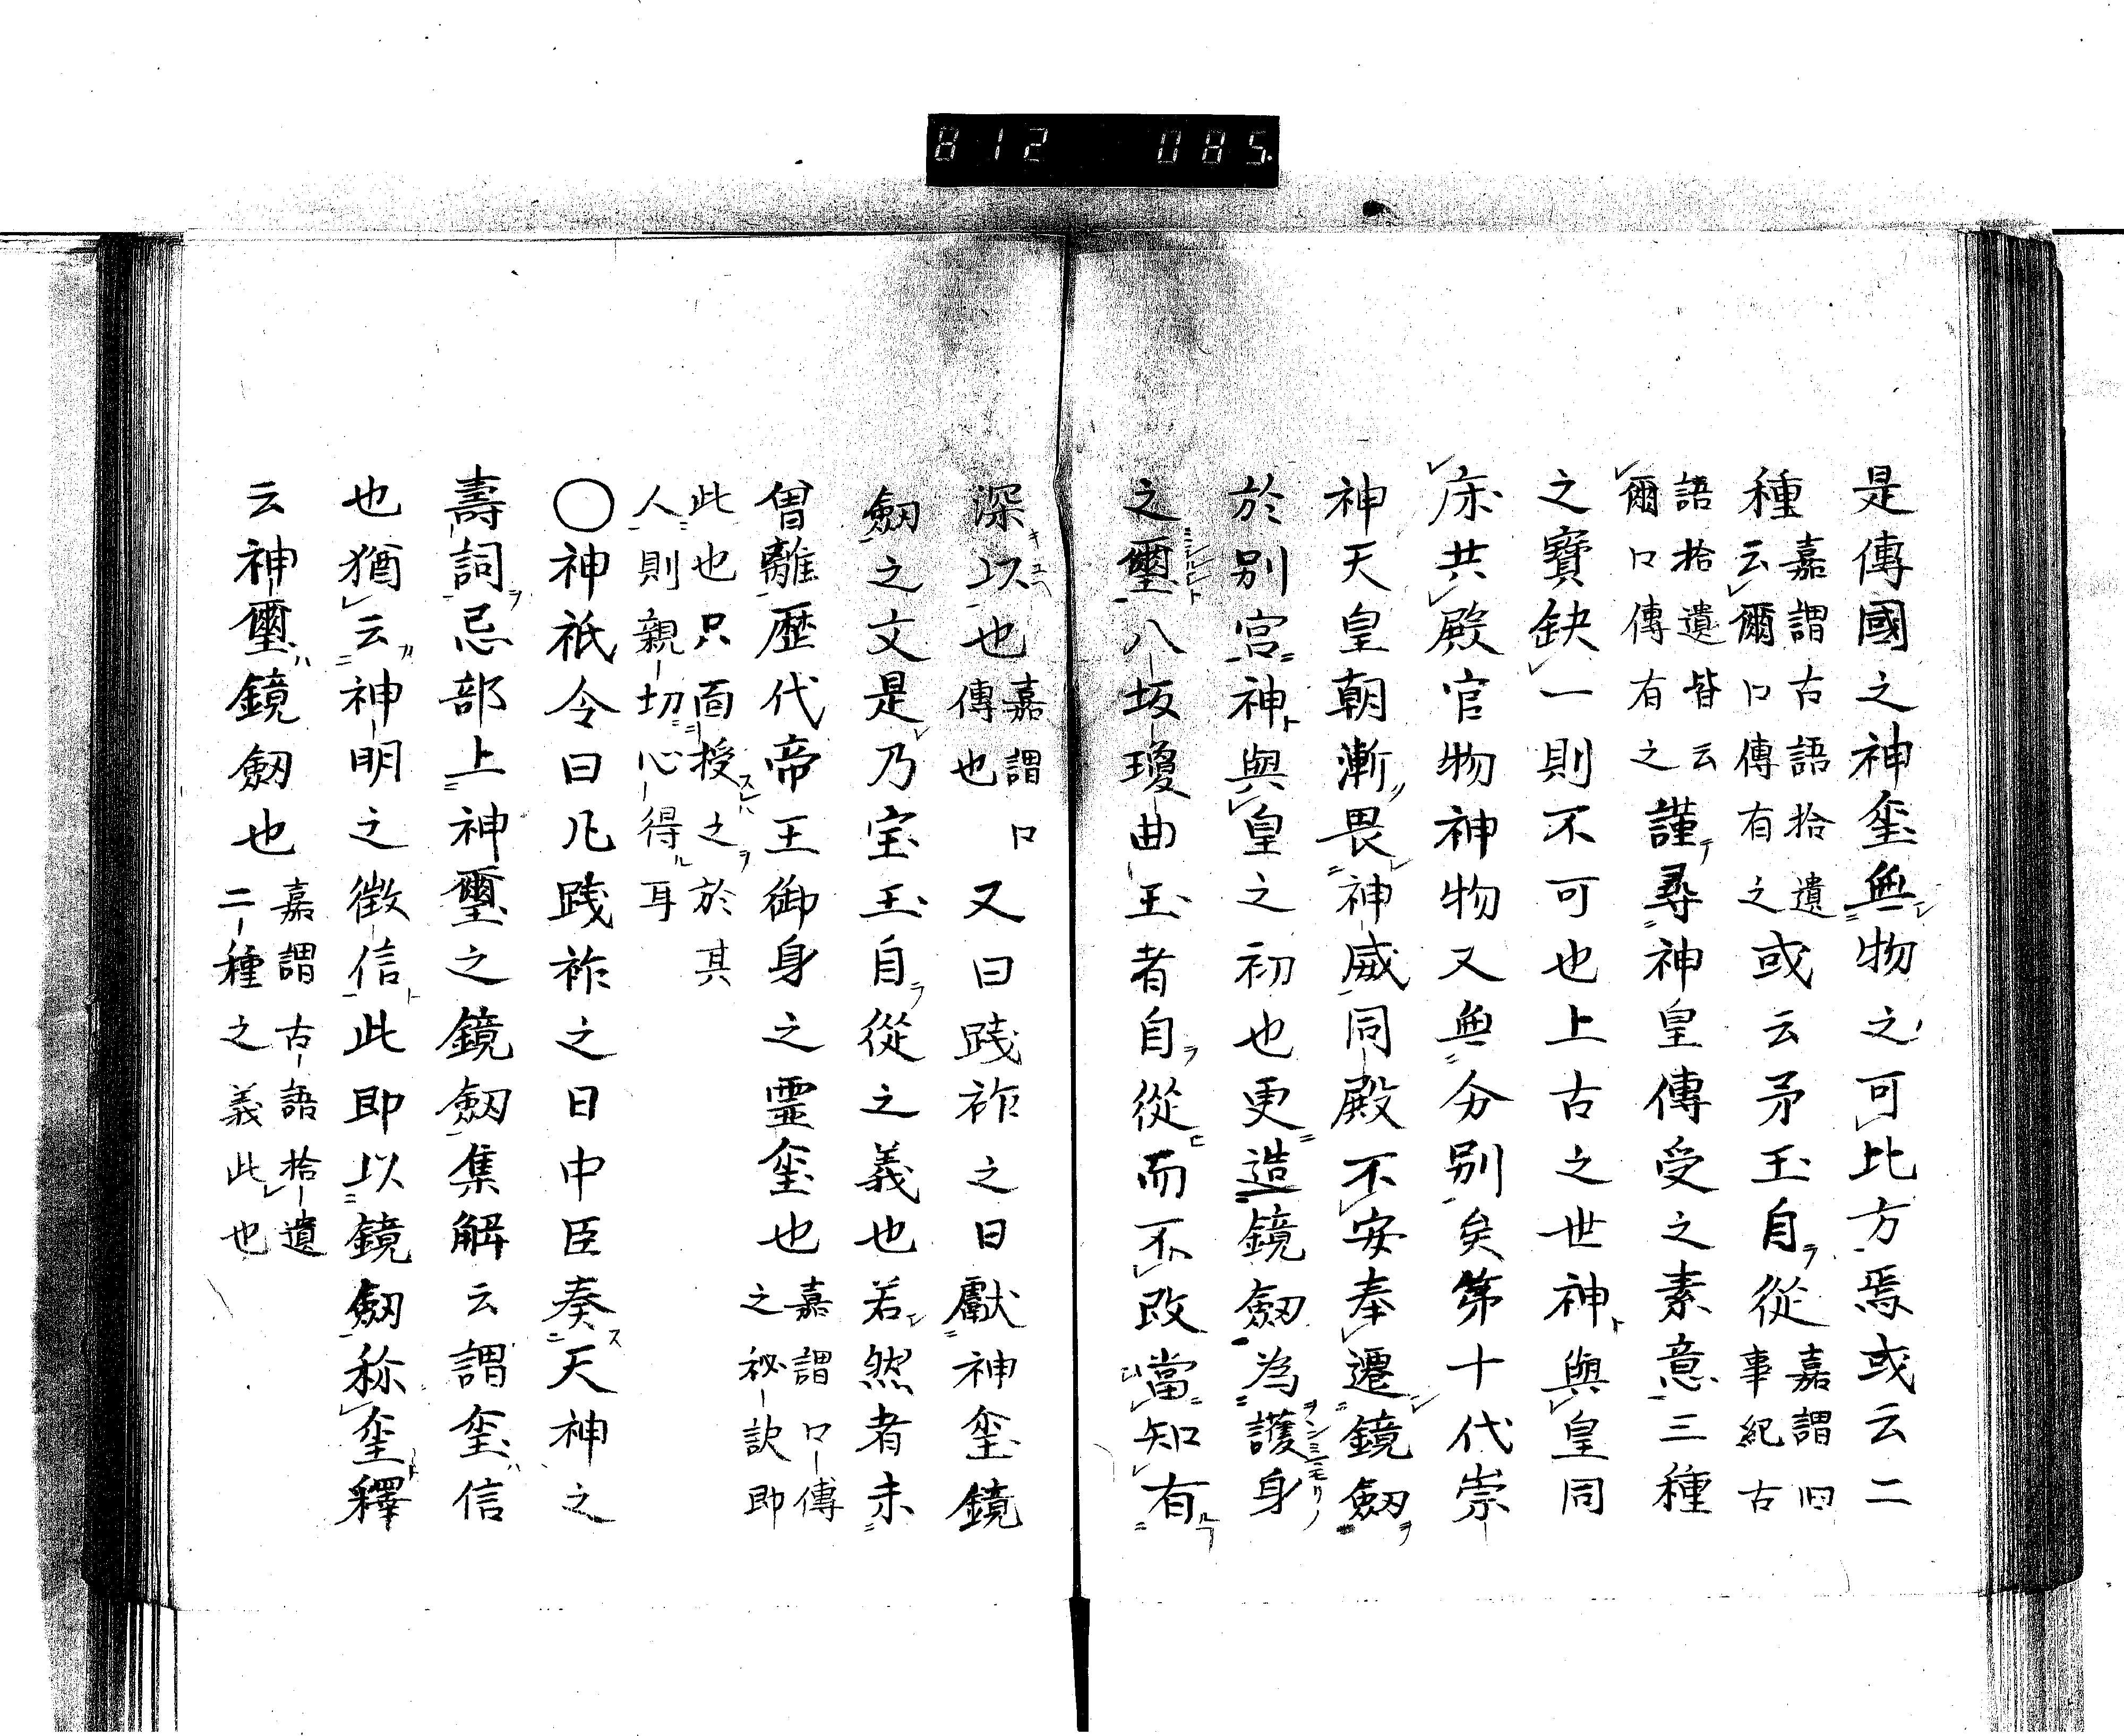 812 085.
是傳國之神玺無物之可比方焉或云二
種嘉謂古語拾遺
云爾口傳有之或云矛玉自從嘉謂旧
事紀古
語拾遺皆云
爾口傳有之謹尋神皇傳受之素意三種
之寶缺一則不可也上古之世神與皇同
床共殿官物神物又無分別矣第十代崇
神天皇朝漸畏神威同殿不安奉遷鏡劔
於別宮神與皇之初也更造鏡劔為護身
之璽八坂瓊曲玉者自從而不改當知有
深以也嘉謂口
傳也又曰践祚之日獻神玺鏡
劔之文是乃宝玉自從之義也若然者未
曽離歷代帝王御身之霊玺也嘉謂口傳
之秘訣即
此也只面授之於其
人則親切心得耳
〇神祇令曰凡践祚之日中臣奏天神之
壽詞忌部上神璽之鏡劔集解云謂玺信
也猶云神明之徴信此即以鏡劔称玺釋
云神璽鏡劔也嘉謂古語拾遺
二種之義此也